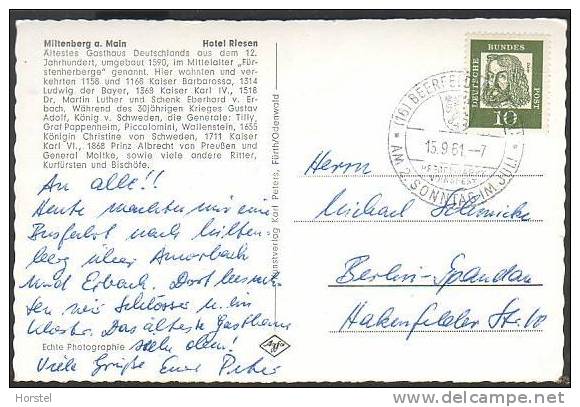 Miltenberg a. Main Hotel Riesen
Ältestes Gasthaus Deutschlands aus dem 12.
Jahrhundert, umgebaut 1590, im Mittelalter „Für-
stenherberge“ genannt. Hier wohnten und ver-
kehrten 1158 und 1168 Kaiser Barbarossa, 1314
Ludwig der Bayer, 1368 Kaiser Karl IV., 1518
Dr. Martin Luther und Schenk Eberhard v. Er-
bach, Während des 30jährigen Krieges Gustav
Adolf, König v. Schweden, die Generale: Tilly,
Graf Pappenheim, Piccolomini, Wallenstein, 1655
Königin Christine von Schweden, 1711 Kaiser
Karl VI., 1868 Prinz Albrecht von Preußen und
General Moltke, sowie viele andere Ritter,
Kurfürsten und Bischöfe.
An alle!!
Heute machten wir eine
Busfahrt nach Milten-
berg über Amorbach
und Erbach. Dort besuch-
ten wir Schlösser u. ein
Kloster. Das älteste Gasthaus
Echte Photographie siehe oben!
Viele Grüße Euer Peter
Kunstverlag Karl Peters, Fürth/Odenwald
DEUTSCHE BUNDES POST
10
15.9.61.-7
AM 2. SONNTAG IM JULI
Herrn
Michael
Berlin-Spandau
Hakenfelder Str. 10
Horstel
DELCAMPE.NET